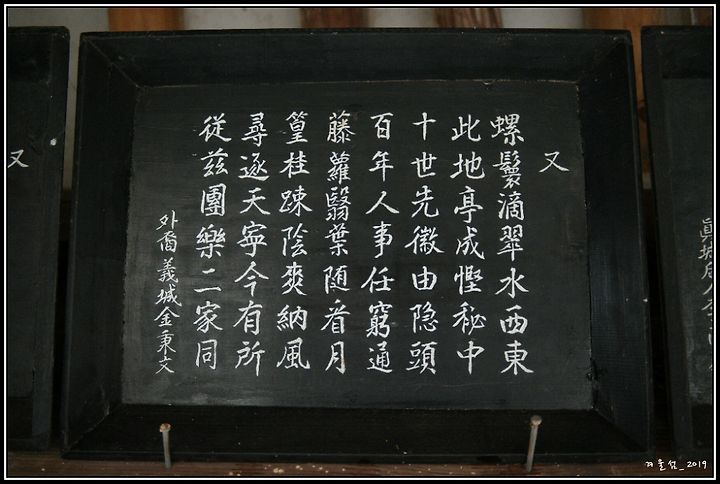 又
螺鬟滴翠水西東
此地亭成慳秘中
十世先徽由隐頭
百年人事任窮通
藤蘿翳葉随看月
篁桂踈陰爽納風
尋逐天寧今有所
従兹團樂二家同
外裔義城金秉文
又
겨울섬_2019